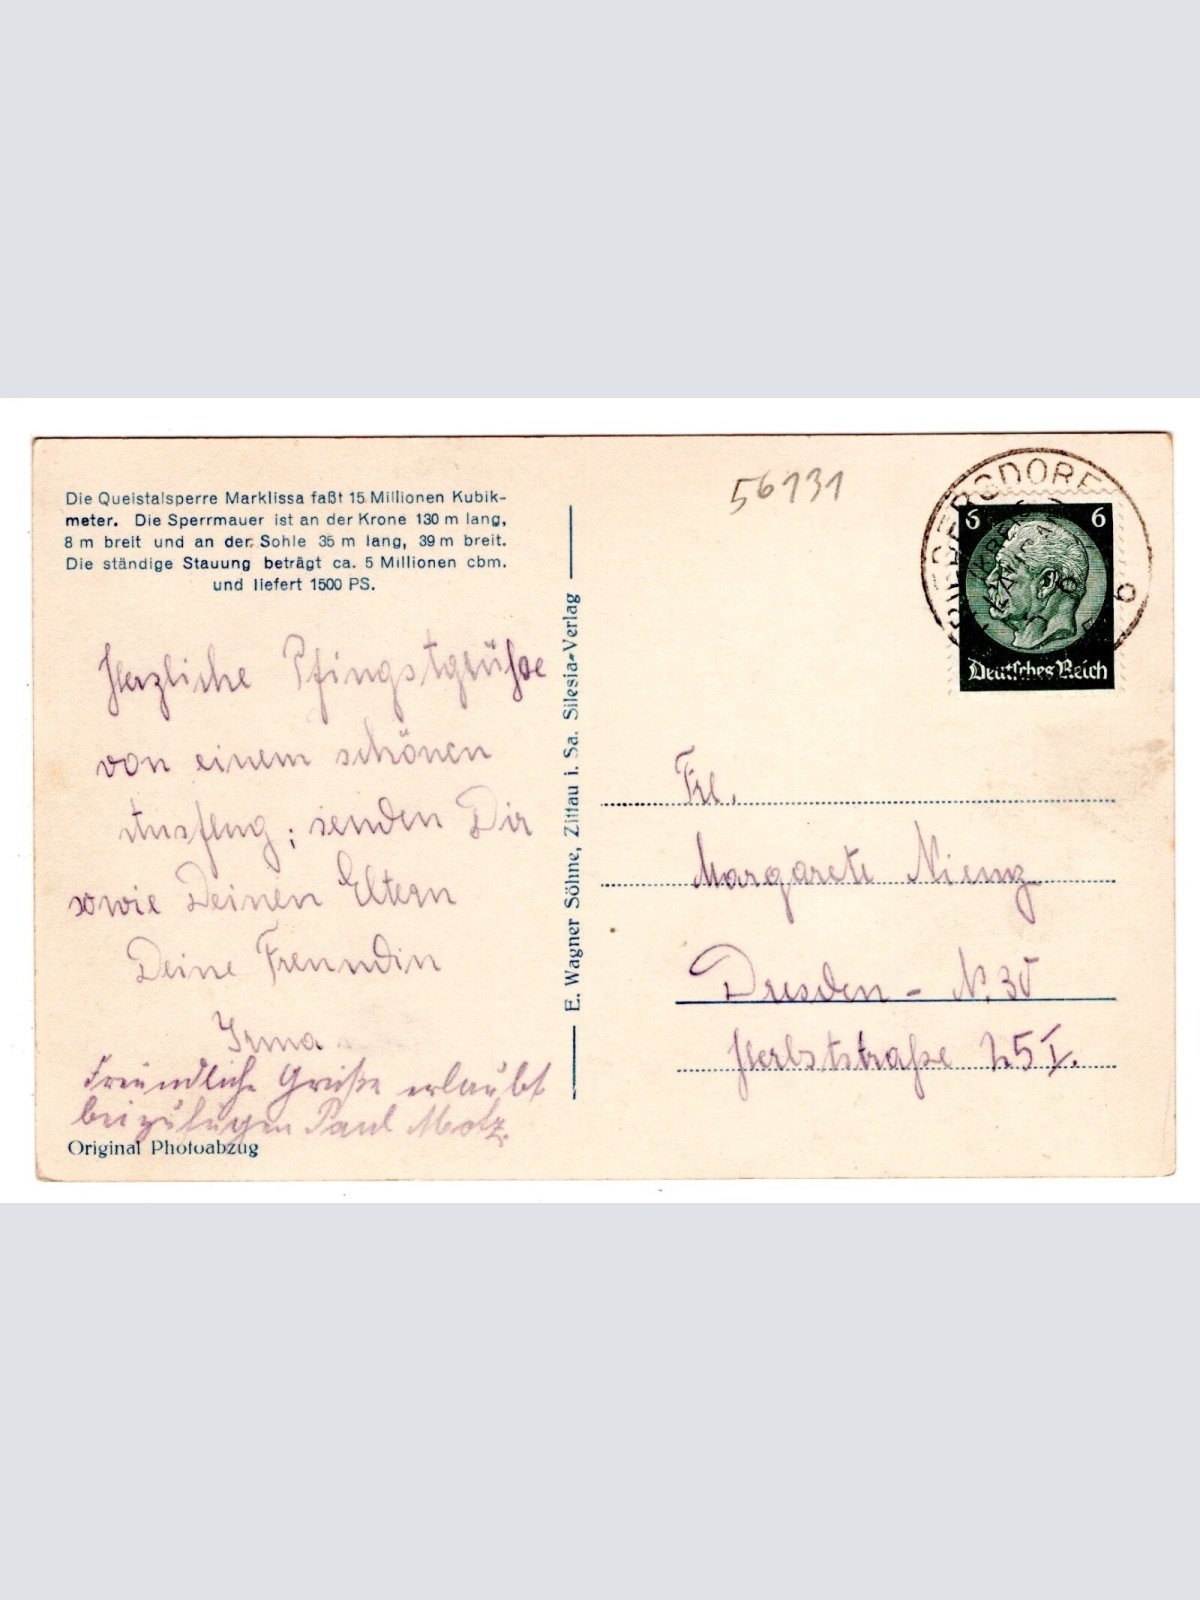 56131
Die Queistalsperre Marklissa faßt 15 Millionen Kubik-
meter. Die Sperrmauer ist an der Krone 130 m lang,
8 m breit und an der Sohle 35 m lang, 39 m breit.
Die ständige Stauung beträgt ca. 5 Millionen cbm.
und liefert 1500 PS.
Herzliche Pfingstgrüße
von einem schönen
Ausflug; senden Dir
sowie Deinen Eltern
Deine Freundin
Irma
Freundliche Grüße erlaubt
beizufügen Paul Motz.
Original Photoabzug
E. Wagner Söhne, Zittau i. Sa. Silesia-Verlag
6 6
Deutsches Reich
Frl.
Margarete Niemz
Dresden - N. 30
Herbststraße 25 I.